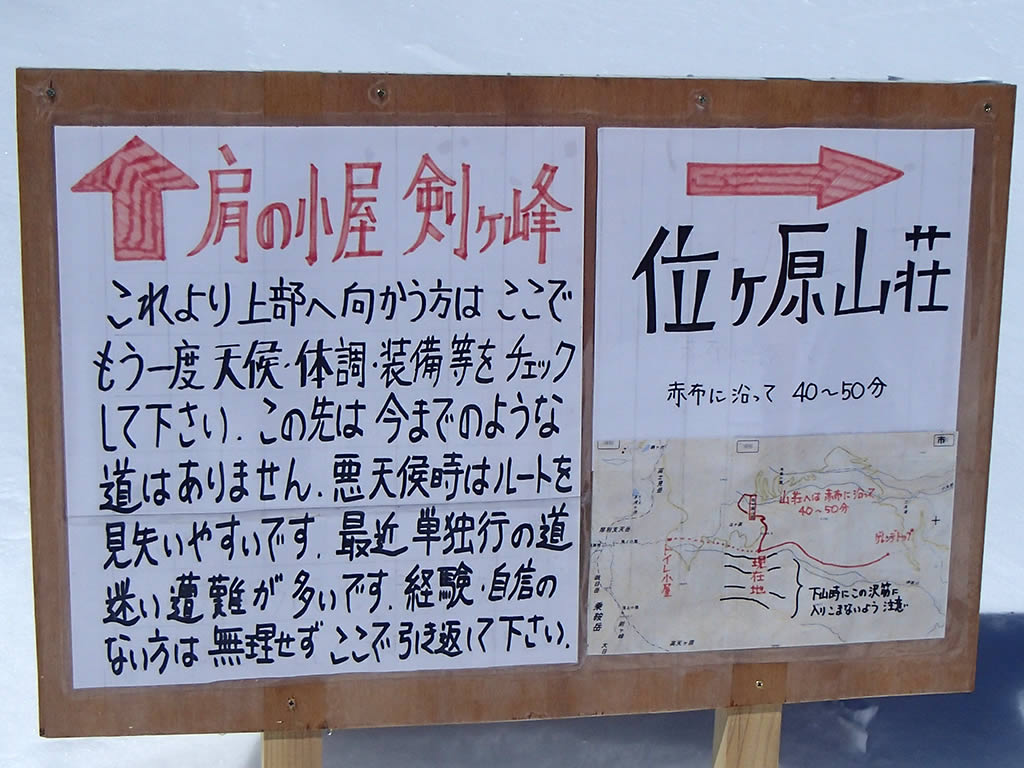 肩の小屋 剣ヶ峰
これより上部へ向かう方は ここで
もう一度 天候・体調・装備等を チェック
して下さい. この先は 今までのような
道はありません. 悪天候時はルートを
見失いやすいです. 最近 単独行の道
迷い遭難が多いです. 経験・自信の
ない方は 無理せず ここで引き返して下さい.
位ヶ原山荘
赤布に沿って 40〜50分
市
山荘へは赤布に沿って
40〜50分
ゲレンデトップ
現在地
トイレ小屋
下山時にこの沢筋に
入りこまないよう 注意
乗鞍岳
大日